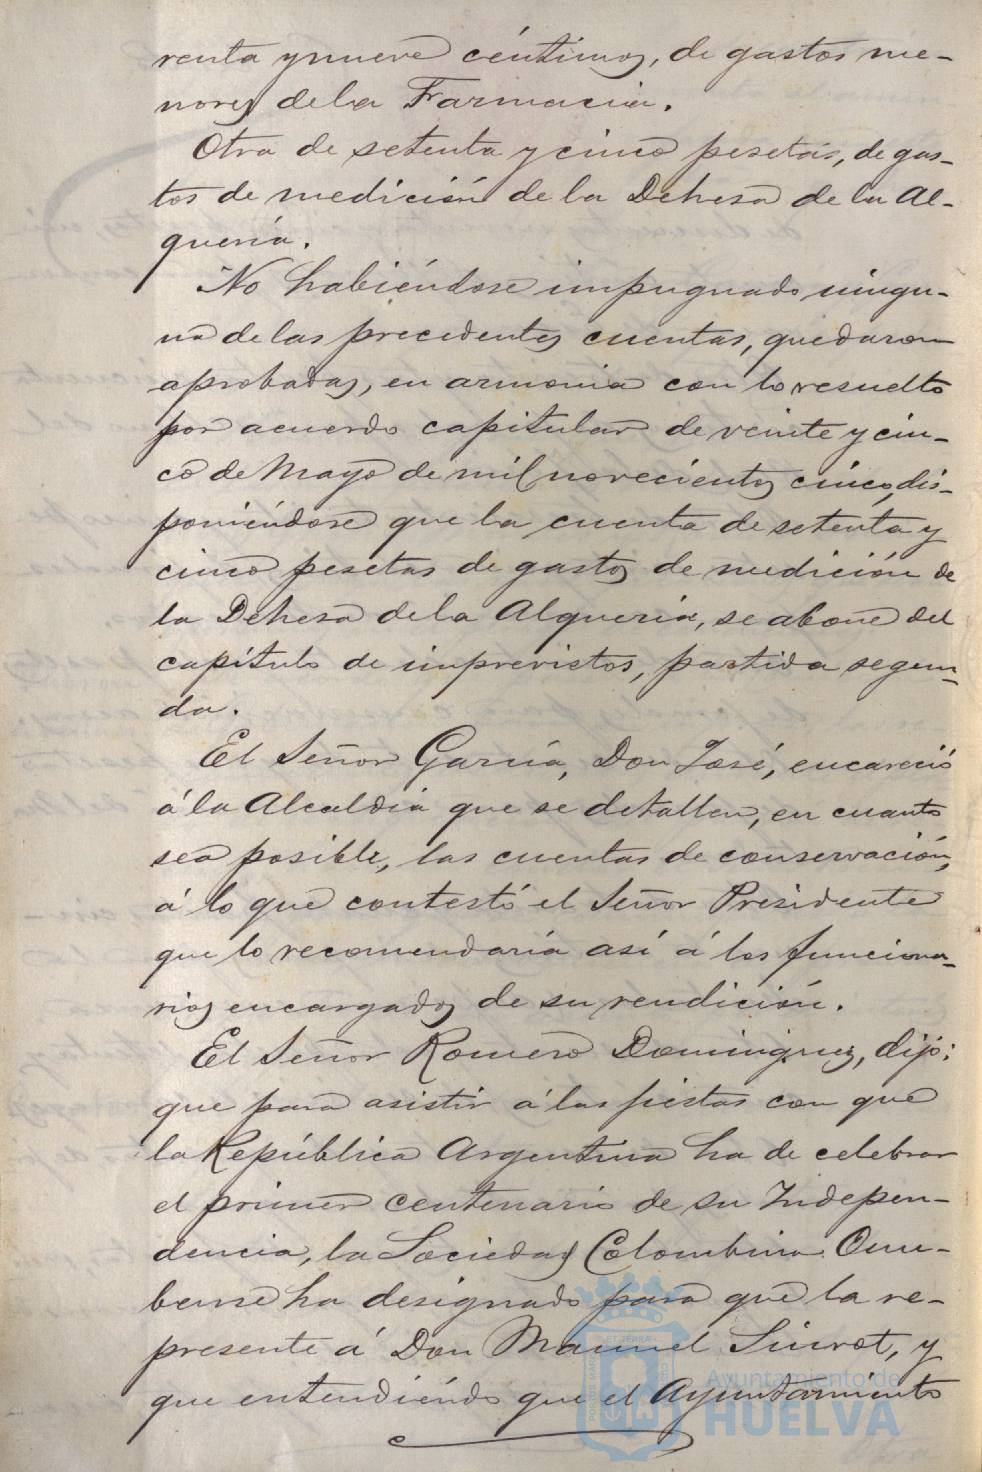 renta y nueve céntimos, de gastos me-
nores de la Farmacia.
Otra de setenta y cinco pesetas, de gas-
tos de medición de la Dehesa de la Al-
quería.
No habiéndose impugnado ningu-
na de las precedentes cuentas, quedaron
aprobadas, en armonia con lo resuelto
por acuerdo capitular de veinte y cin-
co de Mayo de mil novecientos cinco, dis-
poniéndose que la cuenta de setenta y
cinco pesetas de gastos de medición de
la Dehesa de la Alquería, se abone del
capítulo de imprevistos, partida segun-
da.
El Señor García, Don José, encareció
á la Alcaldia que se detallen, en cuanto
sea posible, las cuentas de conservación,
á lo que contestó el Señor Presidente
que lo recomendaría así á los funciona-
rios encargados de su rendición.
El Señor Romero Dominguez, dijo:
que para asistir á las fiestas con que
la República Argentina ha de celebrar
el primer centenario de su Indepen-
dencia, la Sociedad Colombina Onu-
bense ha designado para que la re-
presente á Don Manuel Siurot, y
que entendiéndo que el Ayuntamiento
Ayuntamiento de
HUELVA